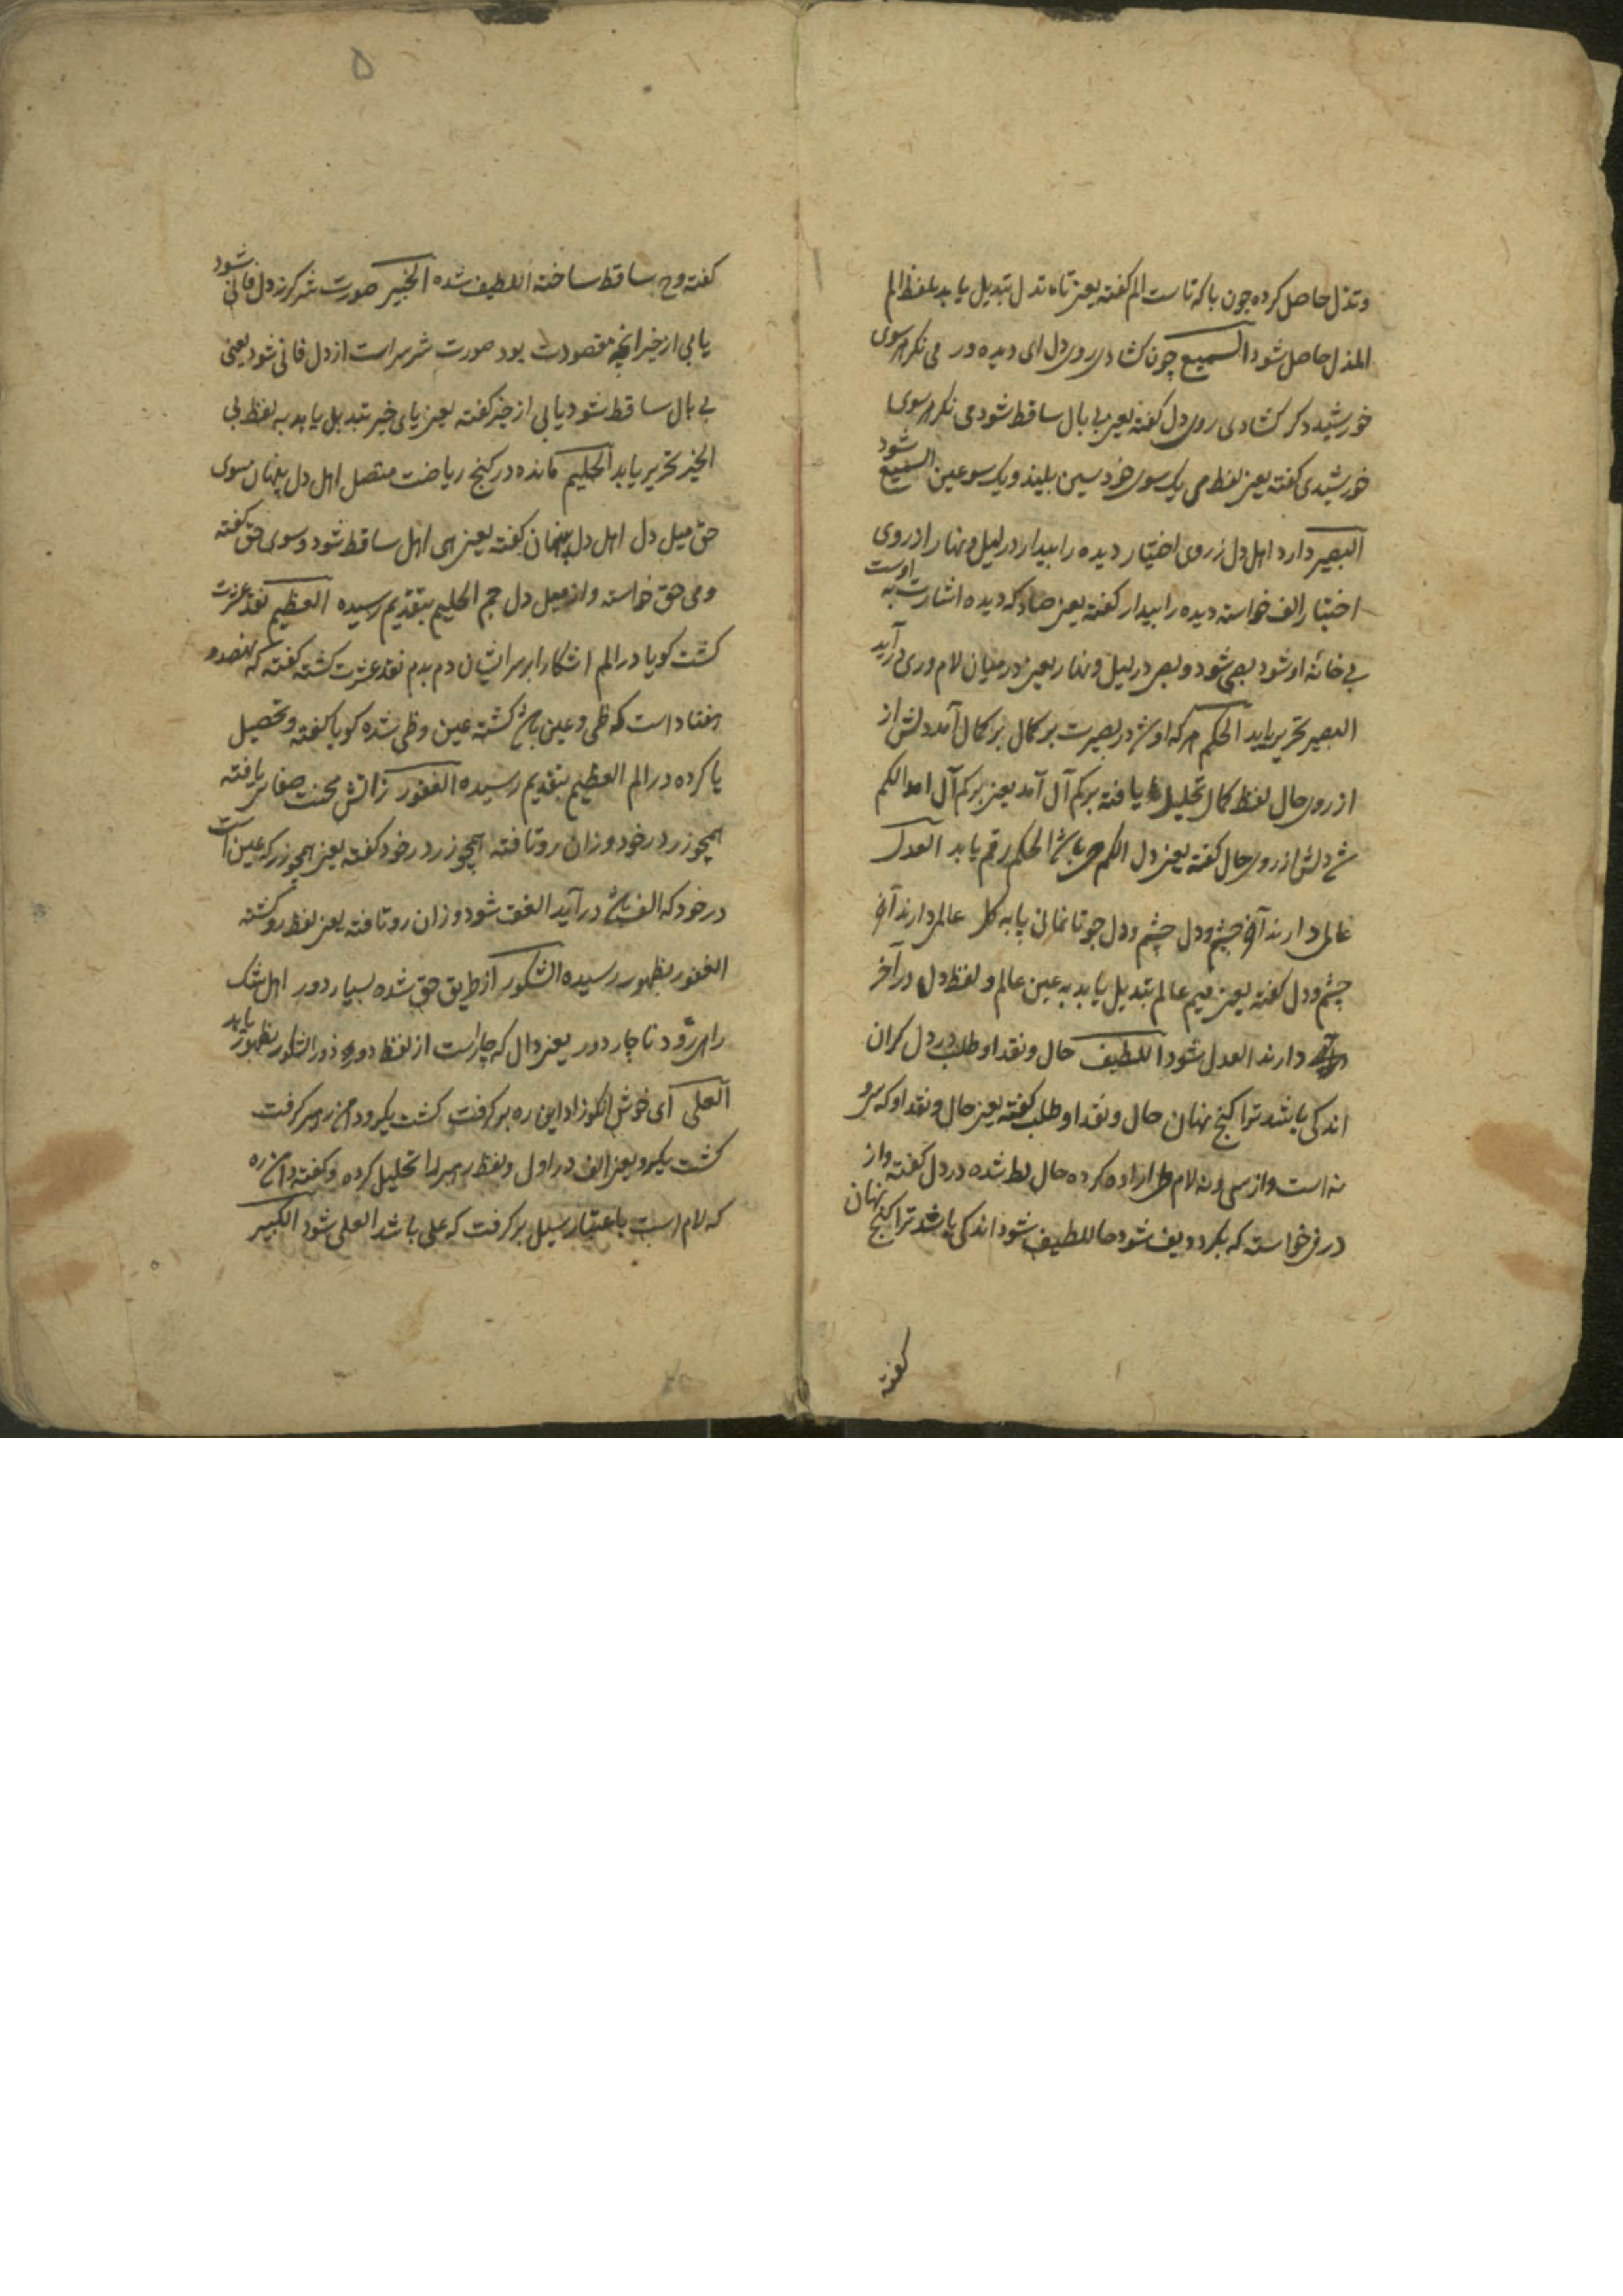 وتذل حاصل کرده چون با که تاست الم کفته یعنی تاه تدل تبدیل یابد بلفظ الم
المذل حاصل شود السمیع چون کشادی روی دل ای دیده ور می نکر هر سوی
خورشید دکر کشادی روی دل کفته یعنی بال ساقط شود می نکر هر سوی
خورشیدی کفته یعنی لفظ می یک سوی خود سین بلیند و یک سو عین السمیع شود
البصیر دارد اهل دل ز روی اختیار دیده را بیدار در لیل و نهار از روی
اختیار الف خواسته دیده را بیدار کفته یعنی صاد که دیده اشارت به اوست
بی خانه او شود بصی شود و بصی در لیل و نهار یعنی در میان لام وری در آید
البصیر تحریر یابد الحکم هر که او شد در بصیرت بر کمال بر کمال آمد دلش از
از روی حال لفظ کمال تحلیل یافته بر کم آل آمد یعنی بر کم آل امد الکم
شد دلش از روی حال کفته یعنی دل الکم ح باشد الحکم رقم یابد العدل
عالمی دارند آخر چشم و دل چشم و دل جو تا نمانی پا به کل عالمی دارند آخر
چشم و دل کفته یعنی میم عالم تبدیل یابد به عین عالم و لفظ دل در آخر
دارند العدل شود اللطیف حال و نقد او طلب در دل کران
اندکی باشد ترا کنج نهان حال و نقد او طلب کفته یعنی حال و نقد او که سی و
نه است و از سی و نه لام و ط اراده کرده حال لط شده در دل کفته و از
در فی خواسته که بکرد و یف شود حاللطیف شود اندکی باشد ترا کنج نهان
کفته
۵
کفته و ح ساقط ساخته اللطیف شده الخبیر صورت شر کر ز دل فانی شود
یابی از خیر انچه مقصودت بود صورت شر سراست از دل فانی شود یعنی
بی بال ساقط شود یابی از خیر کفته یعنی یای خیر تبدیل یابد به لفظ بی
الخبیر تحریر یابد الحلیم مانده در کنج ریاضت متصل اهل دل پنهان سوی
حق میل دل اهل دل پنهان کفته یعنی های اهل ساقط شود و سوی حق کفته
و می حق خواسته و از میل دل حم الحلیم بتقدیم رسیده العظیم نقد عزت
کشت کویا در الم اشکارا بر سر ایشان دم بدم نقد عزت کشته کفته که نهصد و
هفتاد است که ظی و عین باشد کشته عین و ظی شده کویا کفته و تحصیل
یا کرده در الم العظیم بتقدیم رسیده الغفور ز اتش محنت صفا بس یافته
همچو زر در خود و زان رو تافته همچو زر در خود کفته یعنی همچو زر که عین است
در خود که الف باشد در آید الغف شود و زان رو تافته یعنی لفظ رو کشته
الغفور بظهور رسیده الشکور از طریق حق شده بسیار دور اهل شک
راهی رود ناچار دور یعنی دال که چار است از لفظ دور رود ور الشکور بظهور یابد
العلی ای خوش انکو زاد این ره بر کرفت کشت یکرو دامن رهبر کرفت
کشت یکرو یعنی الف در اول و لفظ رهبر را تحلیل کرده و کفته دامن ره
که لام است باعتبار سبیل بر کرفت که علی باشد العلی شود الکبیر